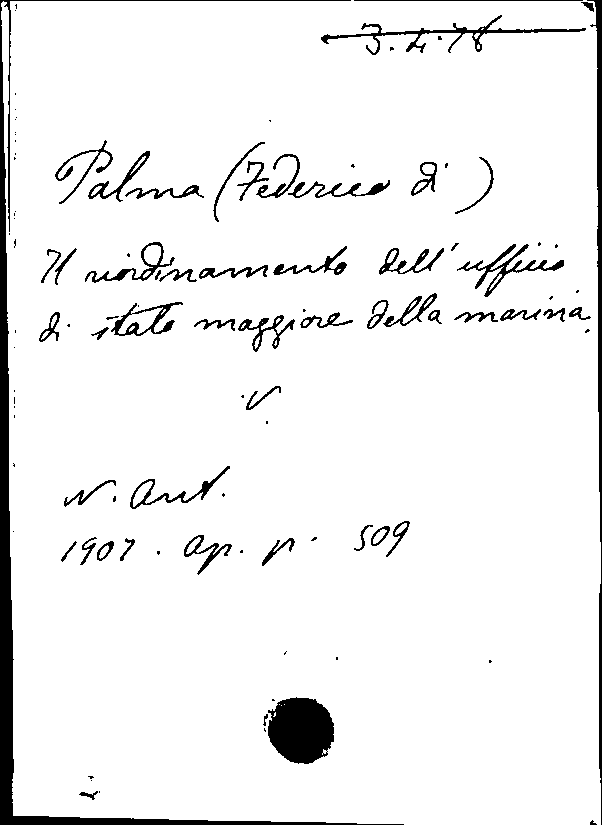 3.4.78
Palma (Federico di)
Il riordinamento dell'ufficio
di stato maggiore della marina.
V.
N. Ant.
1907. Ap. p. 509